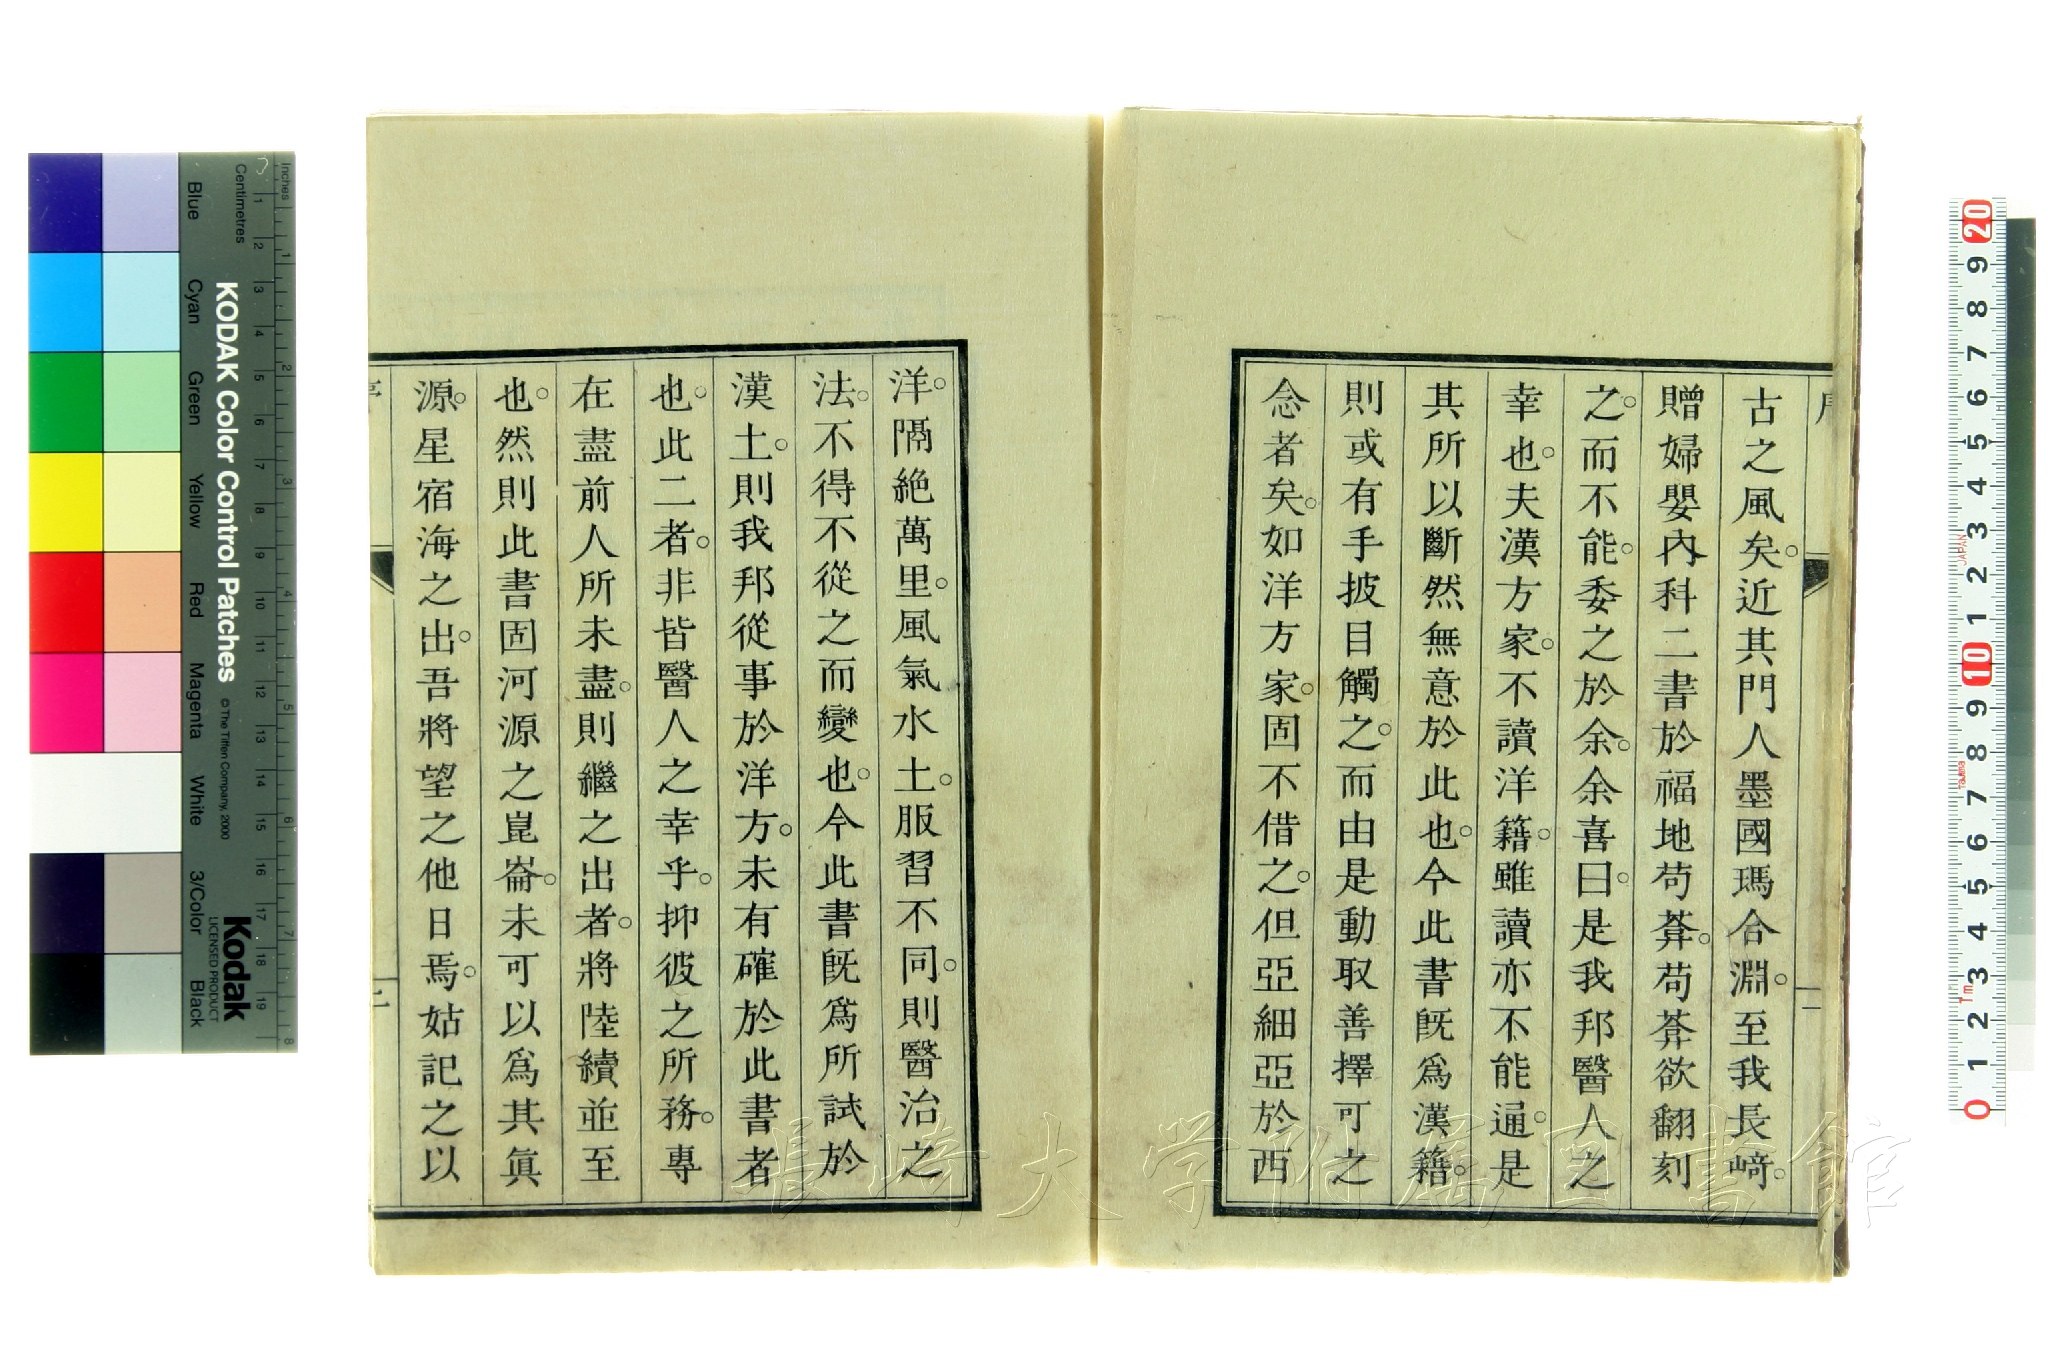 序
古之風矣。近其門人墨國瑪合淵。至我長﨑。
贈婦嬰內科二書於福地苟莾。苟莾欲翻刻
之。而不能。委之於余。余喜曰。是我邦醫人之
幸也。夫漢方家。不讀洋籍。雖讀亦不能通。是
其所以斷然無意於此也。今此書既爲漢籍。
則或有手披目觸之。而由是動取善擇可之
念者矣。如洋方家。固不借之。但亞細亞於西
洋。隔絶萬里。風氣水土。服習不同。則醫治之
法。不得不從之而變也。今此書既爲所試於
漢土。則我邦從事於洋方。未有確於此書者
也。此二者。非皆醫人之幸乎。抑彼之所務。專
在盡前人所未盡。則繼之出者。將陸續並至
也。然則此書固河源之崑崙。未可以爲其眞
源。星宿海之出。吾將望之他日焉。姑記之以
長崎大学附属図書館
KODAK Color Control Patches
© The Tiffen Company, 2000
Kodak
LICENSED PRODUCT
Inches 1 2 3 4 5 6 7 8
Centimetres 1 2 3 4 5 6 7 8 9 10 11 12 13 14 15 16 17 18 19
Blue Cyan Green Yellow Red Magenta White 3/Color Black
0 1 2 3 4 5 6 7 8 9 10 1 2 3 4 5 6 7 8 9 20
JAPAN